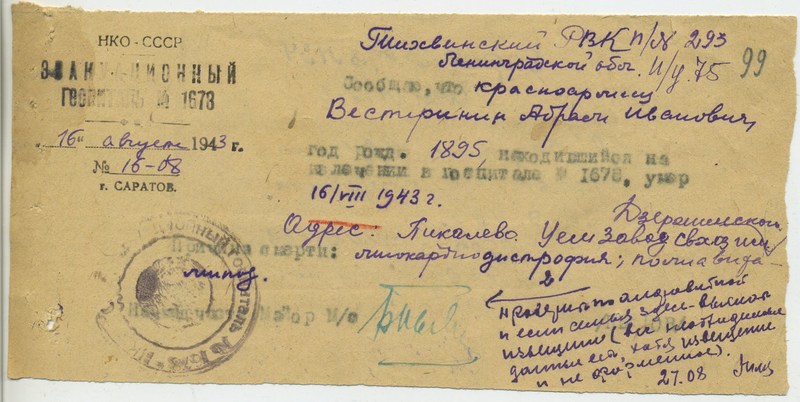 НКО - СССР
ЭВАКУАЦИОННЫЙ
ГОСПИТАЛЬ № 1678
"16" август 1943 г.
№ 16-08
г. САРАТОВ.
Тихвинский РВК п/№ 293
Ленинградской обл. И/у. 75
99
Сообщаю, что красноармеец
Вестеринин Абрам Иванович,
год рожд. 1895, находившийся на
излечении в госпитале № 1678, умер
16/VIII 1943 г.
Адрес: Пикалево Цем Завод
Дзержинского
Причина смерти: миокардиодистрофия;
Начальник Майор М/с
проверить по алфавитной
и если семья здесь - выслать
извещение
хотя извещение
и не форменное).
27.08